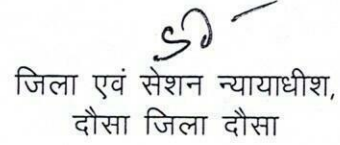 जिला एवं सेशन न्यायाधीश,
दौसा जिला दौसा